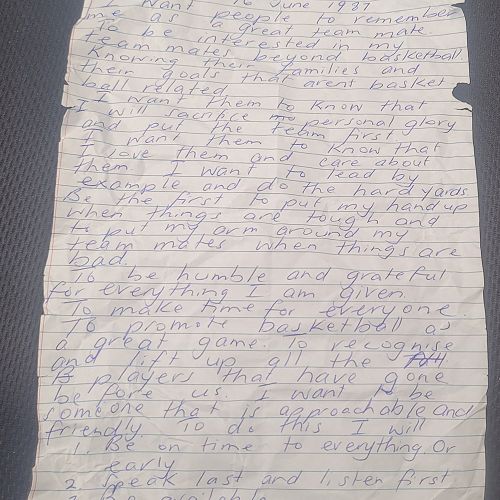 I want 16 June 1987
me as people to remember
a great team mate.
To be interested in my
team mates beyond basketball.
Knowing their families and
their goals that arent basket
ball related.
I want them to know that
I will sacrifice my personal glory
and put the team first.
I want them to know that
I love them and care about
them. I want to lead by
example and do the hard yards
Be the first to put my hand up
when things are tough and
to put my arm around my
team mates when things are
bad.
To be humble and grateful
for everything I am given.
To make time for everyone.
To promote basketball as
a great game. To recognise
and lift up all the
players that have gone
before us. I want to be
someone that is approachable and
friendly. To do this I will
1. Be on time to everything. Or
early
2. Speak last and listen first
3. Be available